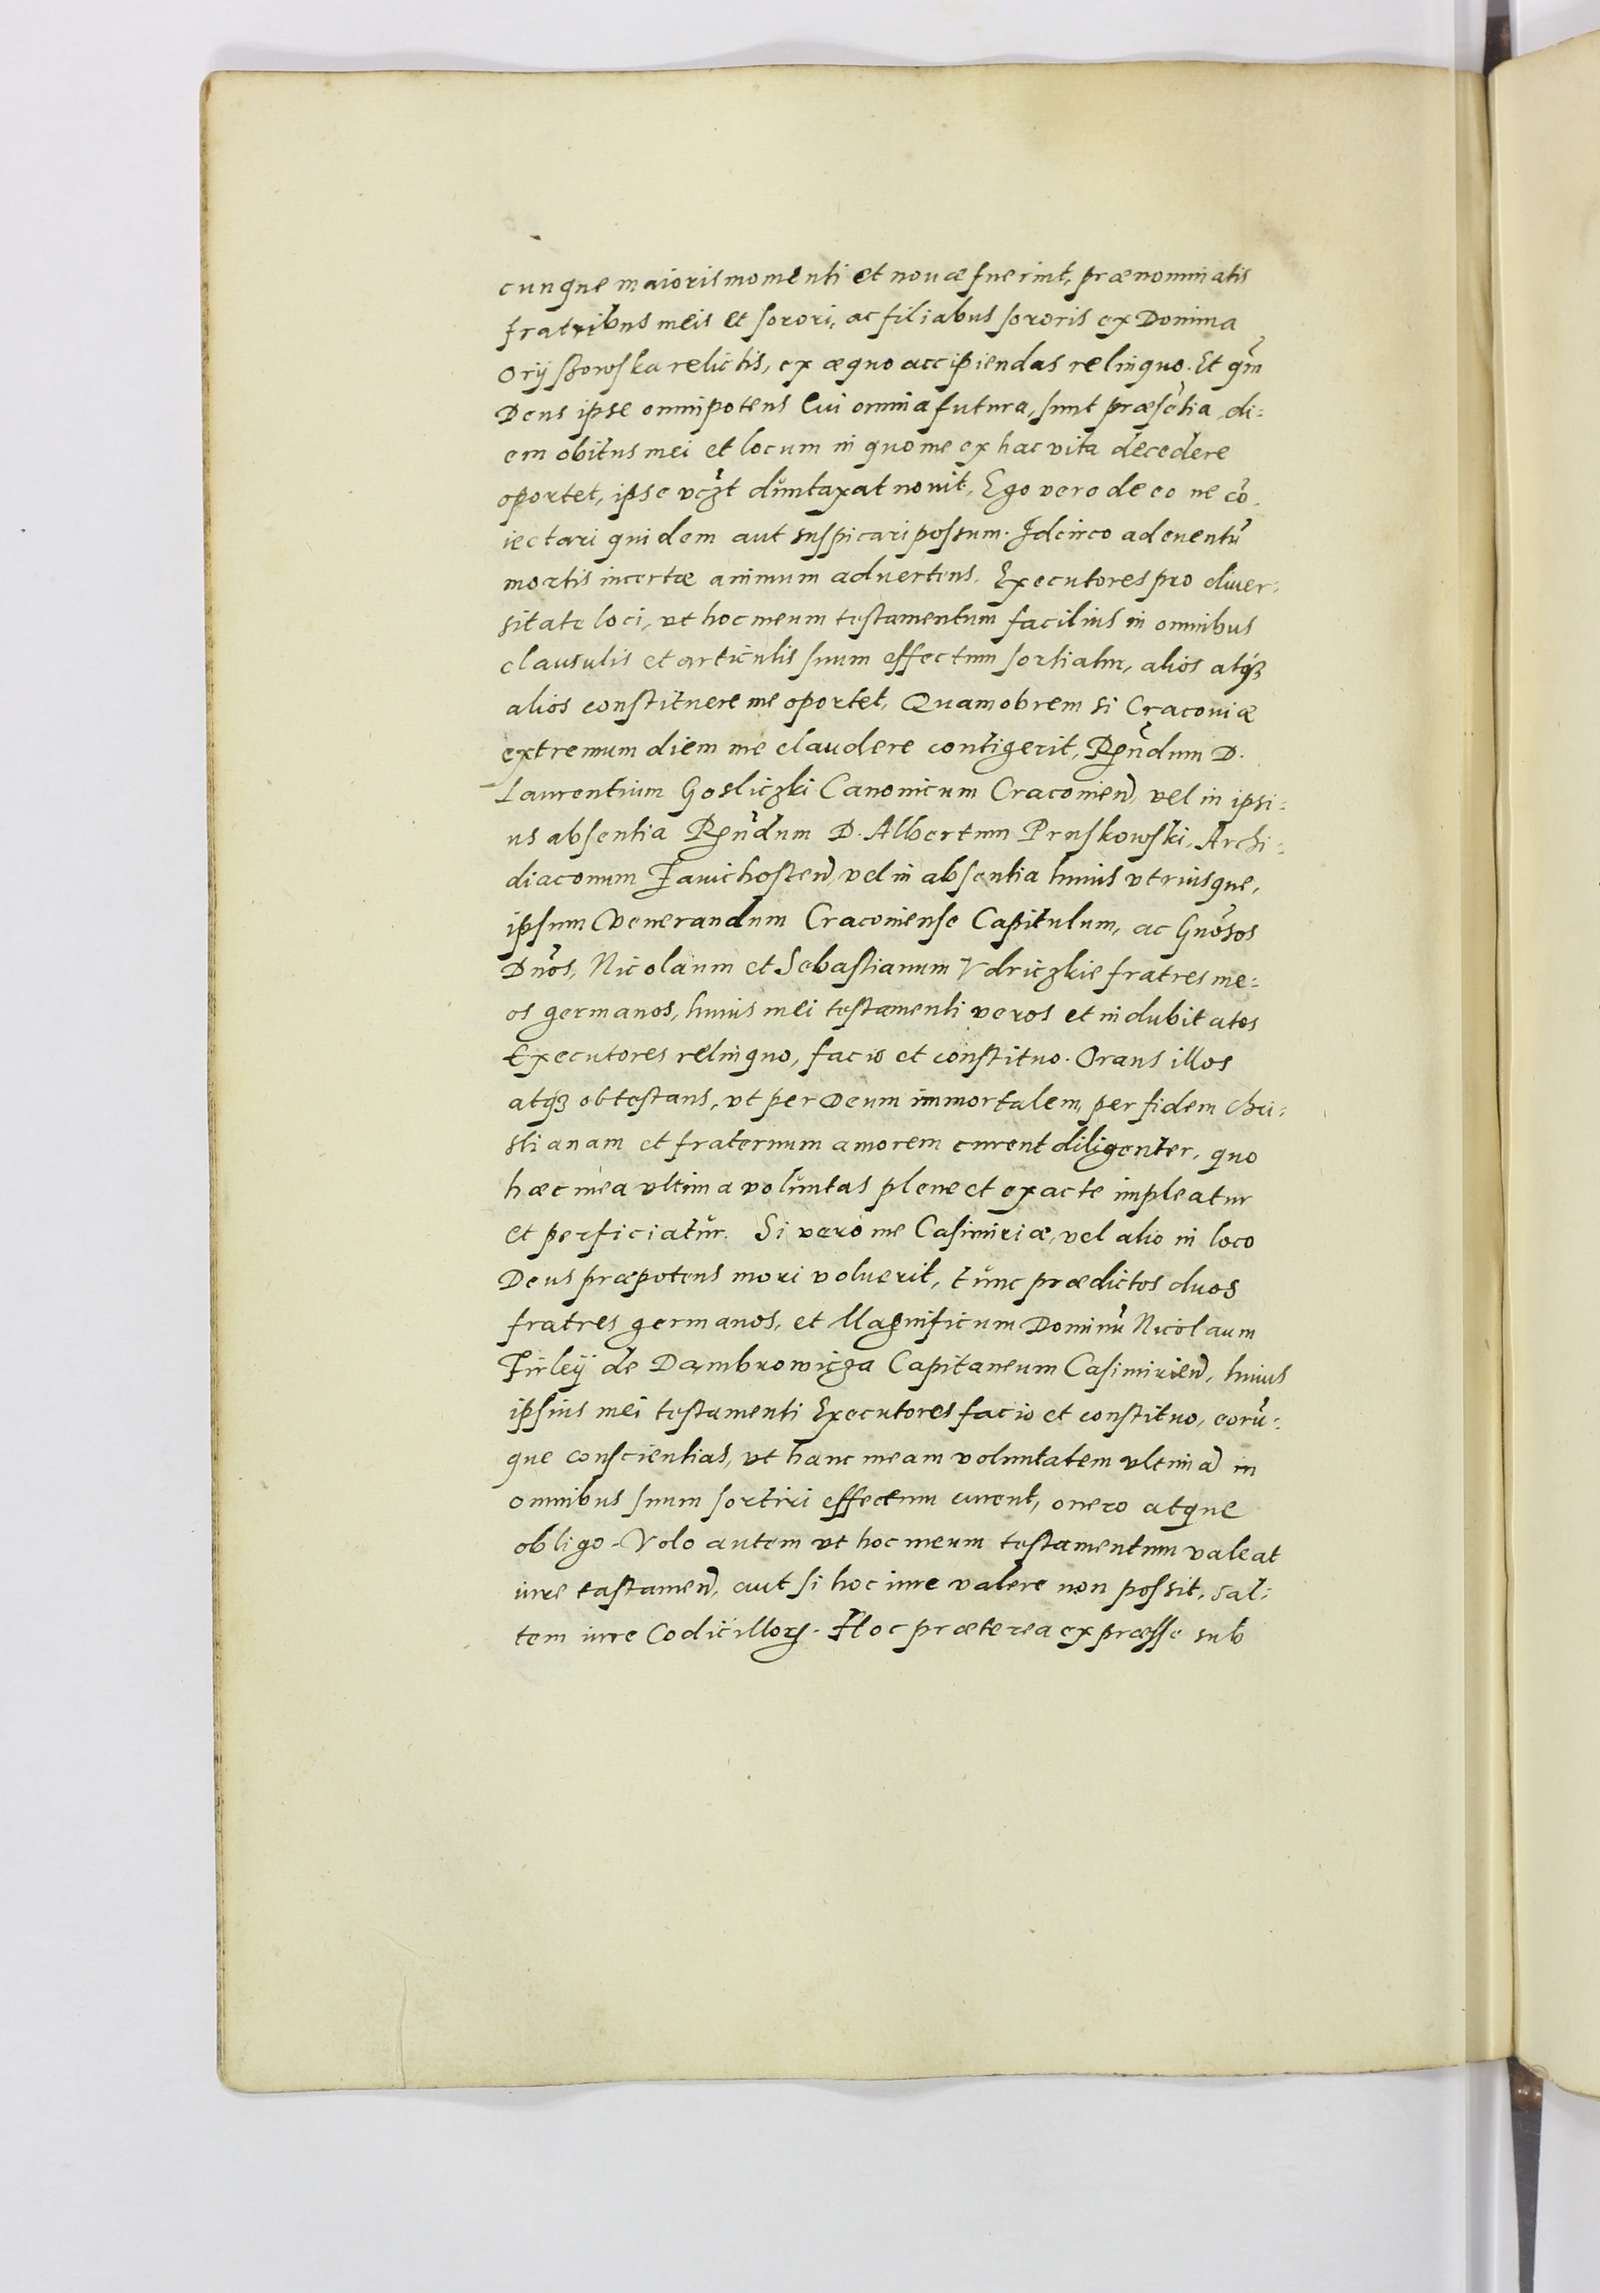 cunque maioris momenti et nouæ fuerint, prænominatis
fratribus meis et sorori, ac filiabus sororis ex Domina
Orÿszowska relictis, ex æquo accipiendas relinquo. Et qm̃
Deus ipse omnipotens cui omnia futura, sunt præsẽtia, di:
em obitus mei et locum in quo me ex hac vita decedere
oportet, ipse vcz̃t duntaxat nouit, Ego vero de eo ne cõ:
iectari quidem aut suspicari possum. Idcirco ad euentũ
mortis incertæ animum aduertens. Executores pro diuer:
sitate loci, vt hoc meum testamentum facilius in omnibus
clausulis et articulis suum effectum sortiatur, alios atqꝫ
alios constituere me oportet, Quamobrem si Cracouiæ
extremum diem me claudere contigerit, Rẽndum D.
Laurentium Gosliczki Canonicum Cracouien̄, vel in ipsi:
us absentia Rẽndum D. Albertum Pruskowski, Archi:
diaconum Zauichosten̄, vel in absentia huius vtriusque,
ipsum Venerandum Cracouiense Capitulum, ac Gnõsos
Dnõs, Nicolaum et Sebastianum Vdriczkie fratres me:
os germanos, huius mei testamenti veros et indubitatos
Executores relinquo, facio et constituo. Orans illos
atqꝫ obtestans, vt per Deum immortalem, per fidem Chri:
stianam et fraternum amorem curent diligenter, quo
hæc mea vltima voluntas plene et exacte impleatur
et perficiatur. Si vero me Casimiriæ, vel alio in loco
Deus præpotens mori voluerit, tunc prædictos duos
fratres germanos, et Magnificum Dominũ Nicolaum
Firleÿ de Dambrowicza Capitaneum Casimirien̄, huius
ipsius mei testamenti Executores facio et constituo, eorũ:
que conscientias, vt hanc meam voluntatem vltimā in
omnibus suum sortiri effectum curent, onero atque
obligo. Volo autem vt hoc meum testamentum valeat
iure testamen̄, aut si hoc iure valere non possit, sal:
tem iure Codicilloꝝ. Hoc præterea expræsse sub